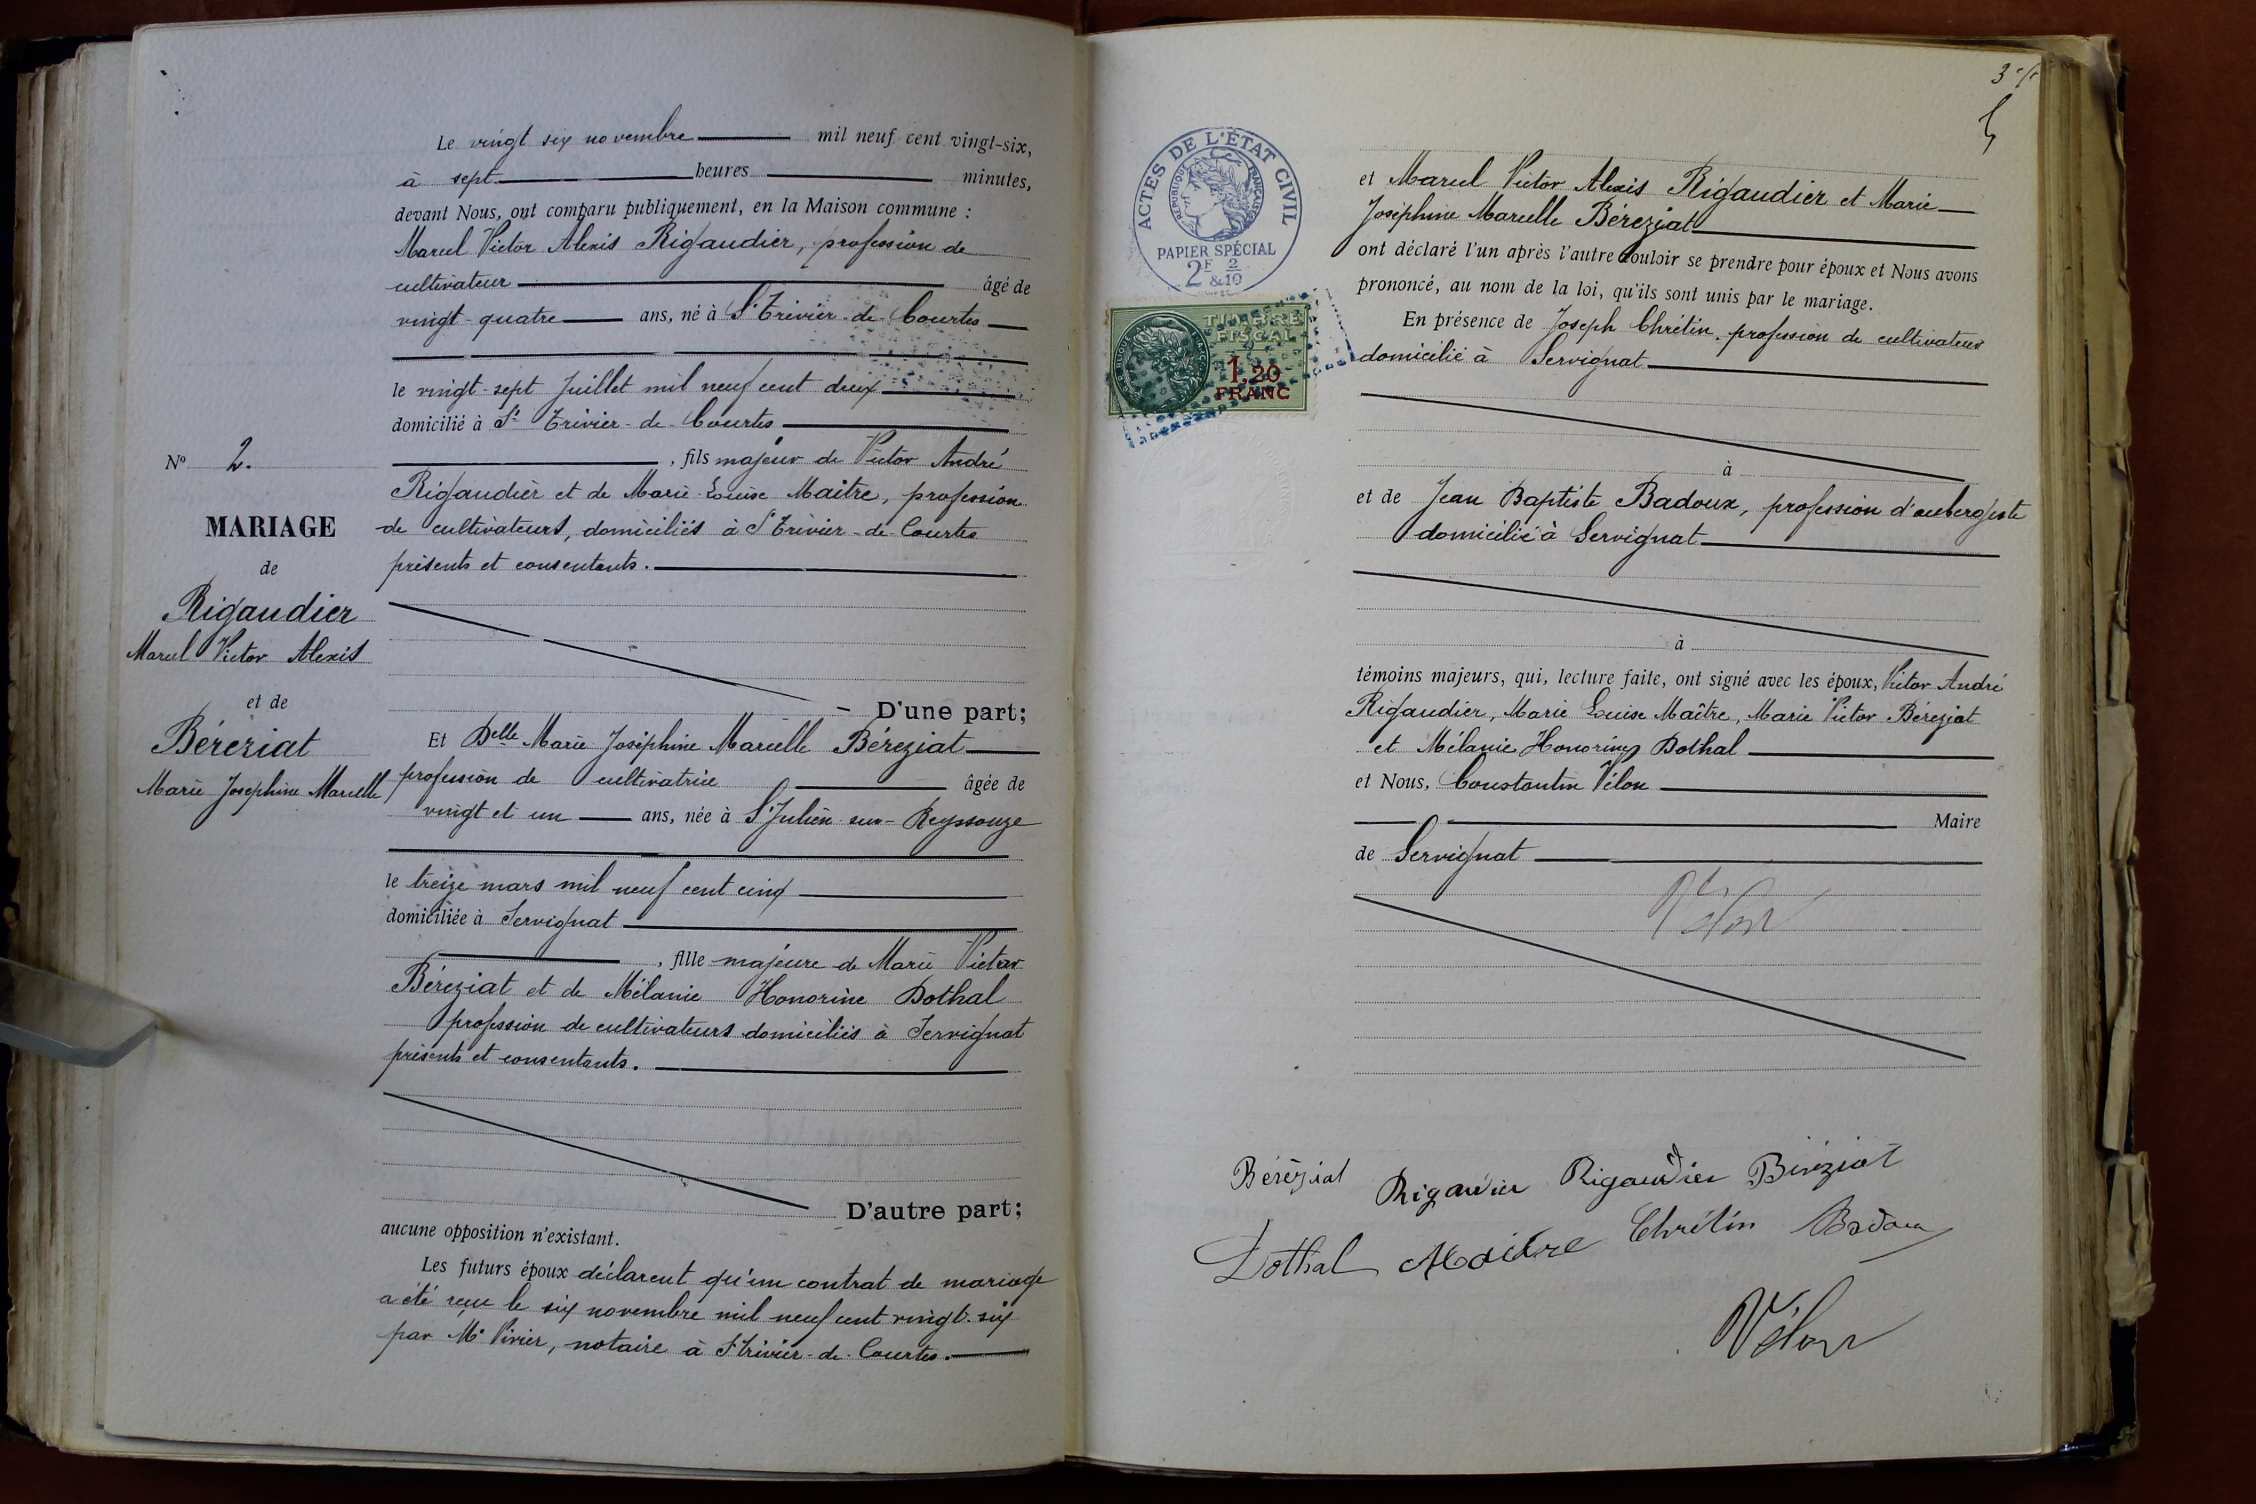 Le vingt six novembre mil neuf cent vingt-six,
à sept heures minutes,
devant Nous, ont comparu publiquement, en la Maison commune :
Marcel Victor Alexis Rigaudier, profession de
cultivateur âgé de
vingt-quatre ans, né à St Trivier-de-Courtes
le vingt-sept Juillet mil neuf cent deux
domicilié à St Trivier-de-Courtes
, fils majeur de Victor André
Rigaudier et de Marie-Louise Maître, profession
de cultivateurs, domiciliés à St Trivier-de-Courtes
présents et consentants.
D'une part;
Et Delle Marie Joséphine Marcelle Béréziat
profession de cultivatrice âgée de
vingt et un ans, née à St Julien-sur-Reyssouze
le treize mars mil neuf cent cinq
domiciliée à Servignat
, fille majeure de Marie Victor
Béréziat et de Mélanie Honorine Dothal
profession de cultivateurs domiciliés à Servignat
présents et consentants.
D'autre part;
aucune opposition n'existant.
Les futurs époux déclarent qu'un contrat de mariage
a été reçu le six novembre mil neuf cent vingt-six
par Me Vivier, notaire à St Trivier-de-Courtes.
No 2.
MARIAGE
de
Rigaudier
Marcel Victor Alexis
et de
Béréziat
Marie Josephine Marcelle
ACTES DE L'ÉTAT CIVIL
RÉPUBLIQUE FRANÇAISE
PAPIER SPÉCIAL
2F 2
&10
TIMBRE
FISCAL
1,20
FRANC
et Marcel Victor Alexis Rigaudier et Marie
Joséphine Marcelle Béréziat
ont déclaré l'un après l'autre vouloir se prendre pour époux et Nous avons
prononcé, au nom de la loi, qu'ils sont unis par le mariage.
En présence de Joseph Chrétin, profession de cultivateur
domicilié à Servignat
à
et de Jean Baptiste Badoux, profession d'aubergiste
domicilié à Servignat
à
témoins majeurs, qui, lecture faite, ont signé avec les époux, Victor André
Rigaudier, Marie Louise Maître, Marie Victor Béréziat
et Mélanie Honorine Dothal
et Nous, Constantin Vélon
Maire
de Servignat
Vélon
Béréziat Rigaudier Rigaudier Béréziat
Dothal Maître Chrétin Badoux
Vélon